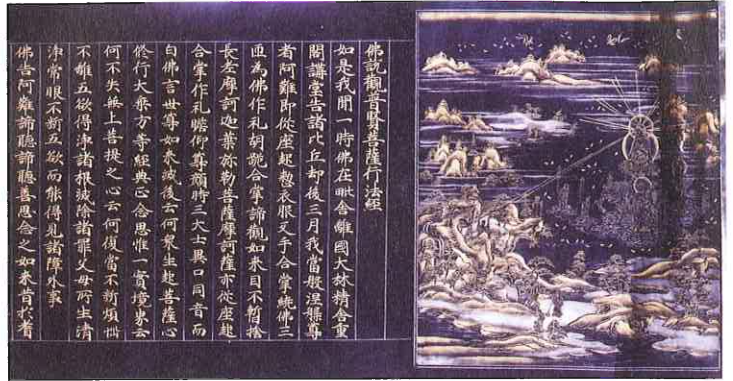 佛説觀普賢菩薩行法經
如是我聞一時佛在毗舍離國大林精舍重
閣講堂告諸比丘却後三月我當般涅槃尊
者阿難即從座起整衣服叉手合掌繞佛三
匝為佛作礼胡跪合掌諦觀如来目不暫捨
長老摩訶迦葉弥勒菩薩摩訶薩亦從座起
合掌作礼瞻仰尊顔時三大士異口同音而
白佛言世尊如来滅後云何衆生起菩薩心
修行大乗方等經典正念思惟一實境界云
何不失無上菩提之心云何復當不断煩惱
不離五欲得淨諸根滅除諸罪父母所生清
淨常眼不断五欲而能得見諸障外事
佛告阿難諦聽諦聽善思念之如来昔於耆